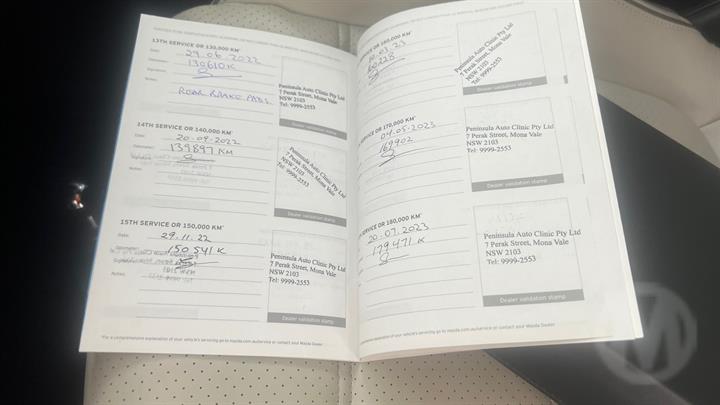 13TH SERVICE OR 130,000 KM*
Date: 29.06.2022
130610K
Notes:
REAR BRAKE PADS
Peninsula Auto Clinic Pty Ltd
7 Perak Street, Mona Vale
NSW 2103
Tel: 9999-2553
Dealer validation stamp
14TH SERVICE OR 140,000 KM*
Date: 20-09-2022
139897 KM
Notes:
Peninsula Auto Clinic Pty Ltd
7 Perak Street, Mona Vale
NSW 2103
Tel: 9999-2553
Dealer validation stamp
15TH SERVICE OR 150,000 KM*
Date: 29.11.22
150 541 K
Notes:
Peninsula Auto Clinic Pty Ltd
7 Perak Street, Mona Vale
NSW 2103
Tel: 9999-2553
Dealer validation stamp
*For a comprehensive explanation of your vehicle's servicing go to mazda.com.au/service or contact your Mazda Dealer
SERVICE OR 160,000 KM*
60228
Peninsula Auto Clinic Pty Ltd
7 Perak Street, Mona Vale
NSW 2103
Tel: 9999-2553
Dealer validation stamp
SERVICE OR 170,000 KM*
04.05.2023
169902
Peninsula Auto Clinic Pty Ltd
7 Perak Street, Mona Vale
NSW 2103
Tel: 9999-2553
Dealer validation stamp
SERVICE OR 180,000 KM*
20.07.2023
179471 K
Peninsula Auto Clinic Pty Ltd
7 Perak Street, Mona Vale
NSW 2103
Tel: 9999-2553
Dealer validation stamp
*For a comprehensive explanation of your vehicle's servicing go to mazda.com.au/service or contact your Mazda Dealer